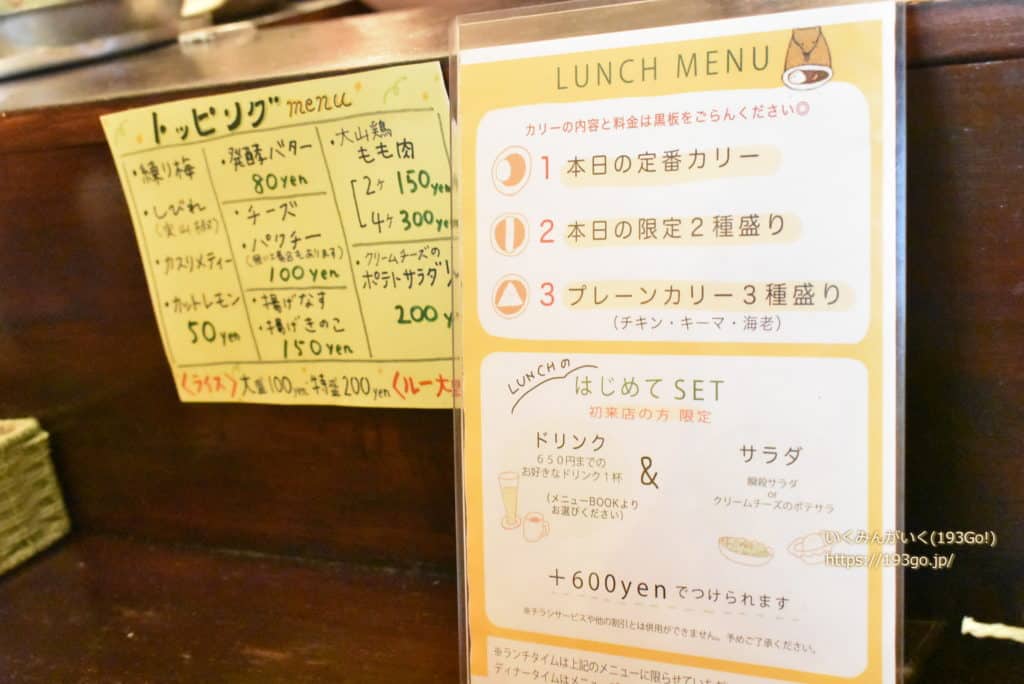 トッピング menu
・練り梅
・しびれ
(実山椒)
・カスリメティー
・カットレモン
50yen
・発酵バター
80yen
・チーズ
・パクチー
(無い場合もあります)
100yen
・揚げなす
・揚げきのこ
150yen
・大山鶏
もも肉
2ヶ 150yen
4ヶ 300yen
・クリームチーズの
ポテトサラダ
200y
〈ライス〉大盛100yen 特盛200yen 〈ルー大
LUNCH MENU
カリーの内容と料金は黒板をごらんください◎
1 本日の定番カリー
2 本日の限定2種盛り
3 プレーンカリー3種盛り
(チキン・キーマ・海老)
LUNCHの
はじめてSET
初来店の方 限定
ドリンク
650円までの
お好きなドリンク1杯
(メニューBOOKより
お選びください)
&
サラダ
瞬殺サラダ
or
クリームチーズのポテサラ
+600yenでつけられます
※チラシサービスや他の割引とは併用ができません。予めご了承ください。
※ランチタイムは上記のメニューに限らせていただ
ディナータイムはメニュー
いくみんがいく(193Go!)
https://193go.jp/